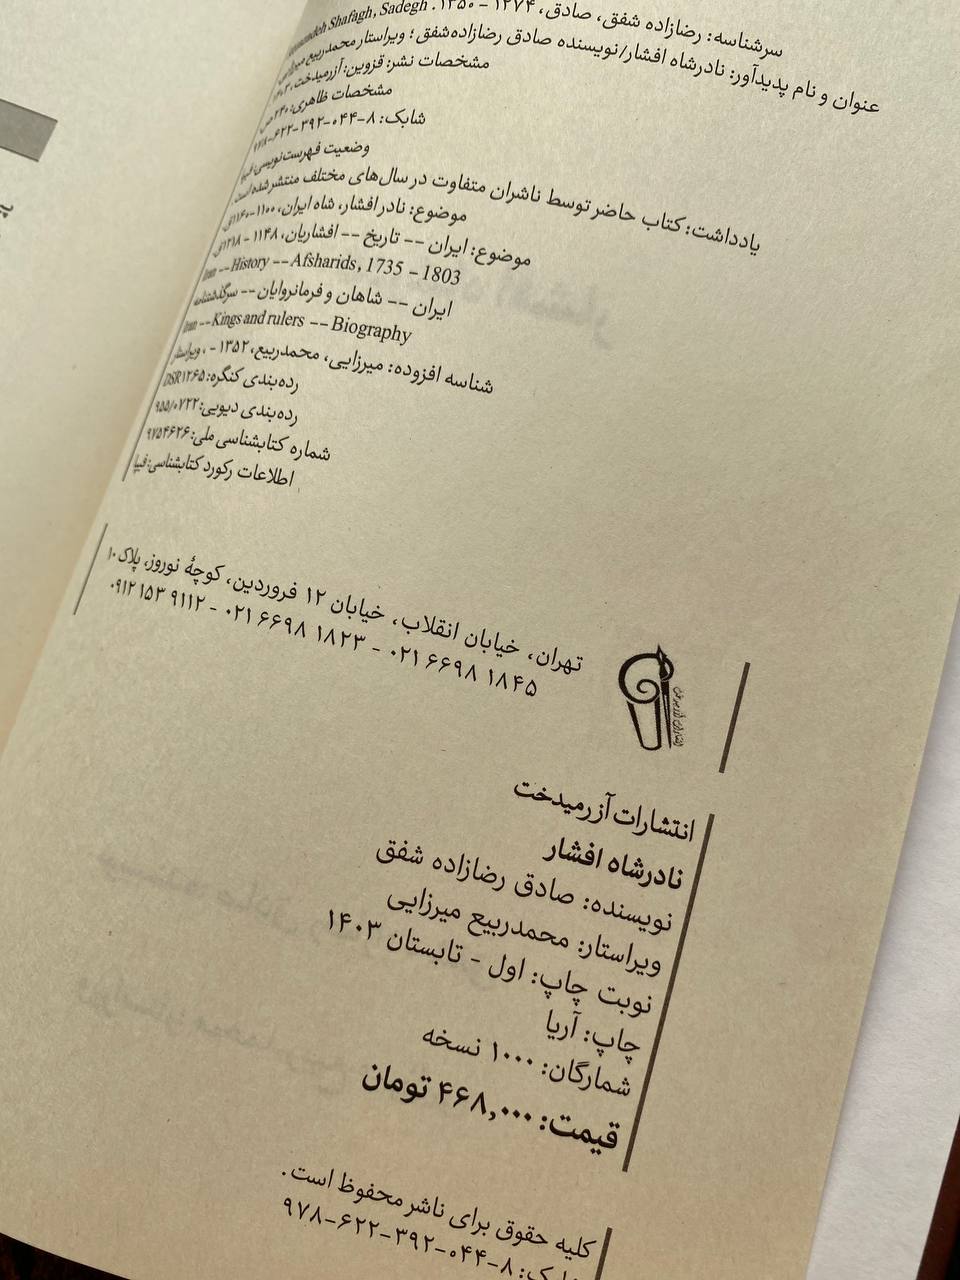 سرشناسه: رضازاده شفق، صادق، ۱۲۷۴ - ۱۳۵۰.
Shafagh, Sadegh
عنوان و نام پدیدآور: نادرشاه افشار/نویسنده صادق رضازاده‌شفق؛ ویراستار محمدربیع میرزایی
مشخصات نشر: قزوین: آزرمیدخت، ۱۴۰۳.
مشخصات ظاهری: ۲۴۰ص
شابک: ۸-۰۴۴-۳۹۲-۶۲۲-۹۷۸
وضعیت فهرست‌نویسی: فیپا
یادداشت: کتاب حاضر توسط ناشران متفاوت در سال‌های مختلف منتشر شده است
موضوع: نادر افشار، شاه ایران، ۱۱۰۰-۱۱۶۰ق.
موضوع: ایران -- تاریخ -- افشاریان، ۱۱۴۸ - ۱۲۱۸ق.
Iran -- History -- Afsharids, 1735 - 1803
ایران -- شاهان و فرمانروایان -- سرگذشتنامه
Iran -- Kings and rulers -- Biography
شناسه افزوده: میرزایی، محمدربیع، ۱۳۵۲ - ، ویراستار
رده‌بندی کنگره: DSR۱۲۶۵
رده‌بندی دیویی: ۹۵۵/۰۷۲۲
شماره کتابشناسی ملی: ۹۷۵۴۶۲۶
اطلاعات رکورد کتابشناسی: فیپا
تهران، خیابان انقلاب، خیابان ۱۲ فروردین، کوچهٔ نوروز، پلاک ۱۰
۰۲۱ ۶۶۹۸ ۱۸۴۵ - ۰۲۱ ۶۶۹۸ ۱۸۲۳ - ۰۹۱۲ ۱۵۳ ۹۱۱۲
انتشارات آزرمیدخت
انتشارات آزرمیدخت
نادرشاه افشار
نویسنده: صادق رضازاده شفق
ویراستار: محمدربیع میرزایی
نوبت چاپ: اول - تابستان ۱۴۰۳
چاپ: آریا
شمارگان: ۱۰۰۰ نسخه
قیمت: ۴۶۸,۰۰۰ تومان
کلیه حقوق برای ناشر محفوظ است.
شابک: ۸-۰۴۴-۳۹۲-۶۲۲-۹۷۸